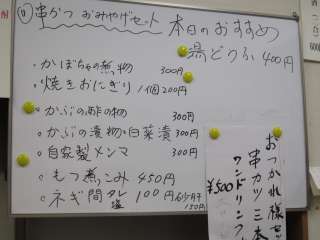 串かつ おみやげセット
本日のおすすめ
湯どうふ 400円
・かぼちゃの煮物 300円
・焼きおにぎり 1個200円
・かぶの酢の物 300円
・かぶの漬物・白菜漬 300円
・自家製メンマ 300円
・もつ煮こみ 450円
・ネギ間 タレ 塩 100円 砂肝 150円
おつかれ様セ
串カツ三本
ワンドリンク
¥500